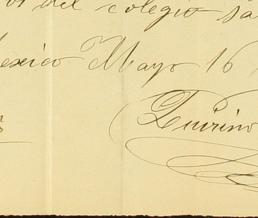 del colegio sa
Mexico Mayo 16
Quirino